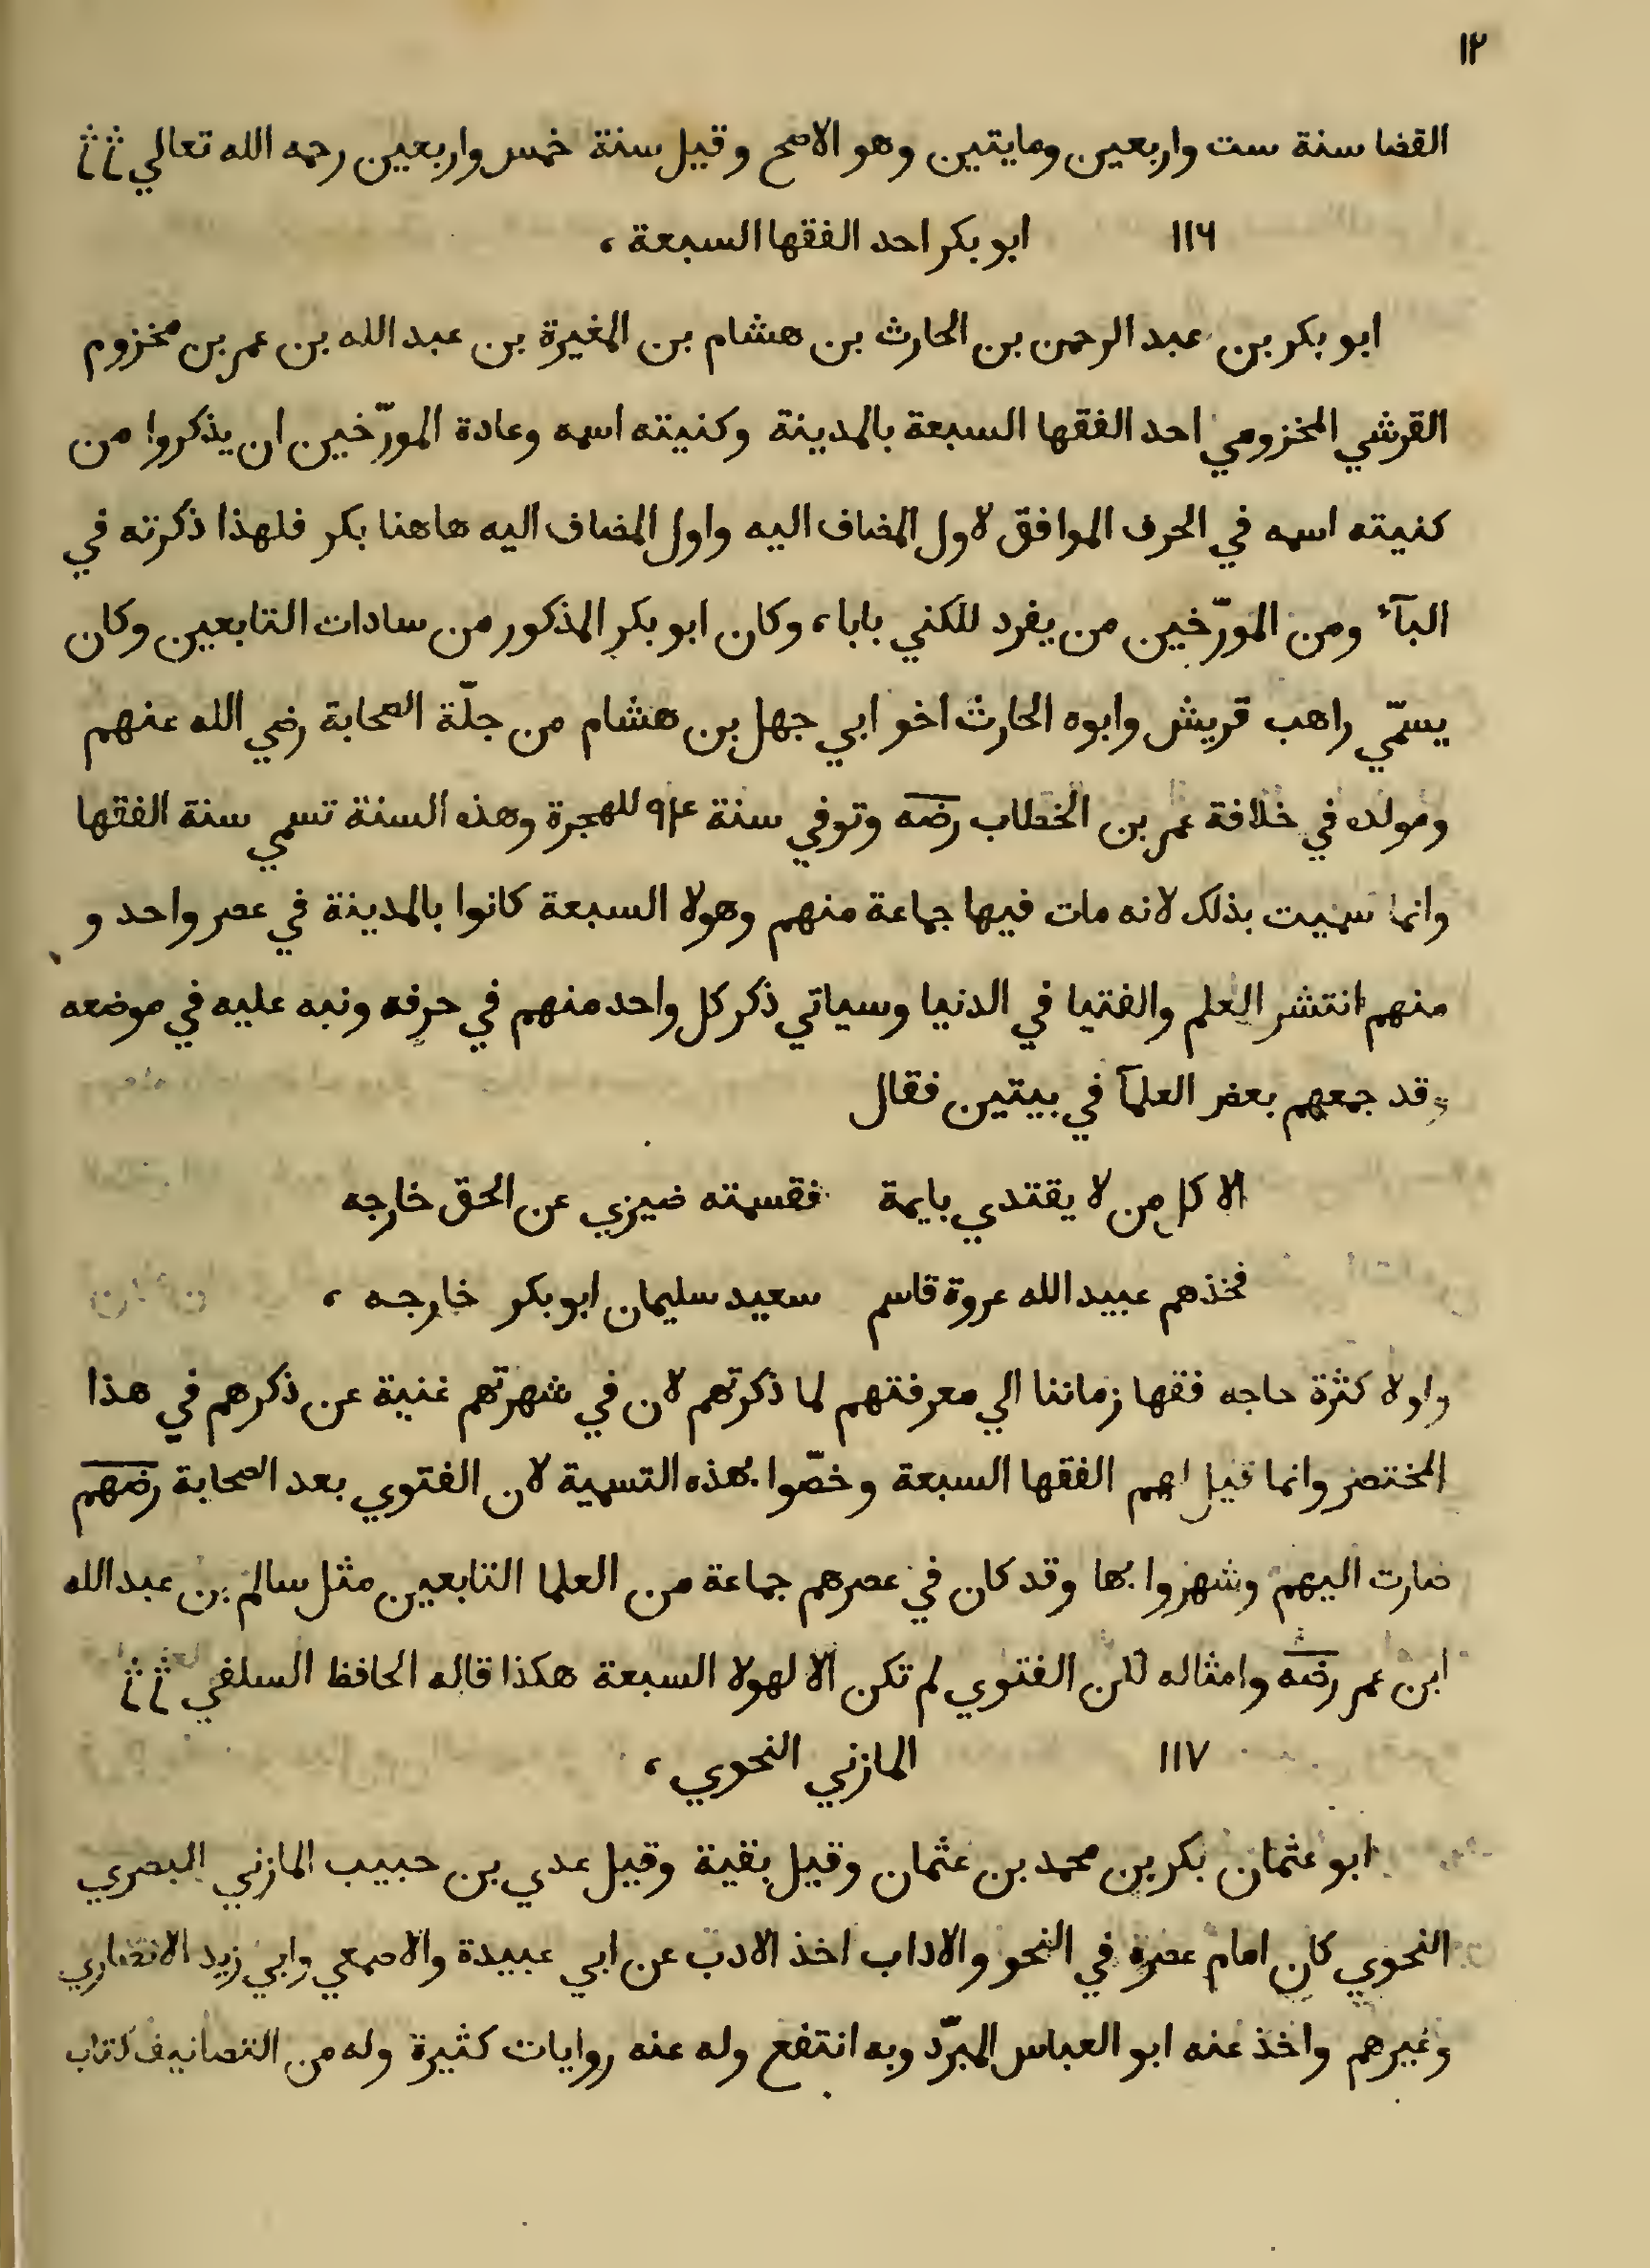 ١٢
القضا سنة ست واربعين ومايتين وهو الاصح وقيل سنة خمس واربعين رحمه الله تعالي
١١٦ ابو بكر احد الفقها السبعة ،
ابو بكر بن عبد الرحمن بن الحارث بن هشام بن المغيرة بن عبد الله بن عمر بن مخزوم
القرشي المخزومي احد الفقها السبعة بالمدينة وكنيته اسمه وعادة المورّخين ان يذكروا من
كنيته اسمه في الحرف الموافق لاول المضاف اليه واول المضاف اليه هاهنا بكر فلهذا ذكرته في
البآء ومن المورّخين من يفرد للكني بابا ، وكان ابو بكر المذكور من سادات التابعين وكان
يسمّي راهب قريش وابوه الحارث اخو ابي جهل بن هشام من جلّة الصحابة رضي الله عنهم
ومولده في خلافة عمر بن الخطاب رضه وتوفي سنة ٩٤ للهجرة وهذه السنة تسمي سنة الفقها
وانما سميت بذلك لانه مات فيها جماعة منهم وهولا السبعة كانوا بالمدينة في عصر واحد و
منهم انتشر العلم والفتيا في الدنيا وسياتي ذكر كل واحد منهم في حرفه ونبه عليه في موضعه
وقد جمعهم بعض العلمآ في بيتين فقال
الا كل من لا يقتدي بايمة فقسمته ضيزي عن الحق خارجه
فخذهم عبيد الله عروة قاسم سعيد سليمان ابو بكر خارجه ،
ولولا كثرة حاجه فقها زماننا الي معرفتهم لما ذكرتهم لان في شهرتهم غنية عن ذكرهم في هذا
المختصر وانما قيل لهم الفقها السبعة وخصّوا بهذه التسمية لان الفتوي بعد الصحابة رضهم
صارت اليهم وشهروا بها وقد كان في عصرهم جماعة من العلما التابعين مثل سالم بن عبد الله
ابن عمر رضه وامثاله لكن الفتوي لم تكن الا لهولا السبعة هكذا قاله الحافظ السلفي
١١٧ المازني النحوي ،
ابو عثمان بكر بن محمد بن عثمان وقيل بقية وقيل عدي بن حبيب المازني البصري
النحوي كان امام عصره في النحو والاداب اخذ الادب عن ابي عبيدة والاصمعي وابي زيد الانصاري
وغيرهم واخذ عنه ابو العباس المبرّد وبه انتفع وله عنه روايات كثيرة وله من التصانيف كتاب